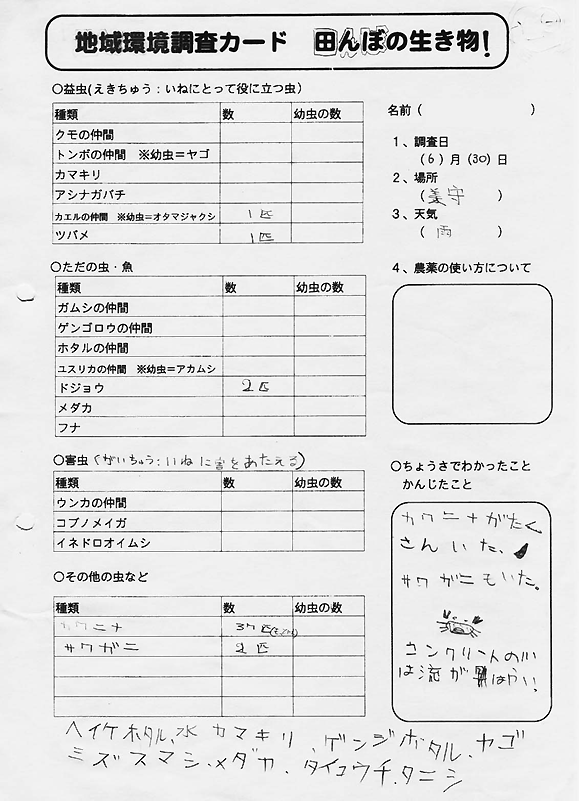 地域環境調査カード 田んぼの生き物!
○益虫(えきちゅう:いねにとって役に立つ虫)
種類 数 幼虫の数
クモの仲間
トンボの仲間 ※幼虫=ヤゴ
カマキリ
アシナガバチ
カエルの仲間 ※幼虫=オタマジャクシ 1匹
ツバメ 1匹
○ただの虫・魚
種類 数 幼虫の数
ガムシの仲間
ゲンゴロウの仲間
ホタルの仲間
ユスリカの仲間 ※幼虫=アカムシ
ドジョウ 2匹
メダカ
フナ
○害虫(がいちゅう:いねに害をあたえる)
種類 数 幼虫の数
ウンカの仲間
コブノメイガ
イネドロオイムシ
○その他の虫など
種類 数 幼虫の数
カワニナ 37匹
サワガニ 2匹
名前( )
1、調査日
(6)月(30)日
2、場所
(美守 )
3、天気
( 雨 )
4、農薬の使い方について
○ちょうさでわかったこと
かんじたこと
カワニナがたく
さんいた、
サワガニもいた。
コンクリートの川
は流が はやい!
ヘイケホタル、水カマキリ、ゲンジホタル、ヤゴ
ミズスマシ、メダカ、タイコウチ、タニシ